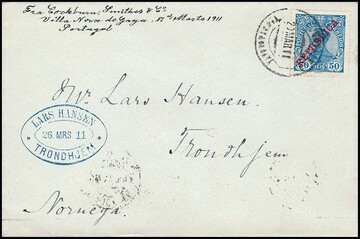 Fra Cockburn, Smithes & Co
Villa Nova de Gaya. 17 de Marto 1911
Portogal
50 50
REPUBLICA
MAR 11
Mr Lars Hansen.
LARS HANSEN
26. MRS. 11
TRONDHJEM
Trondhjem
Noruega.